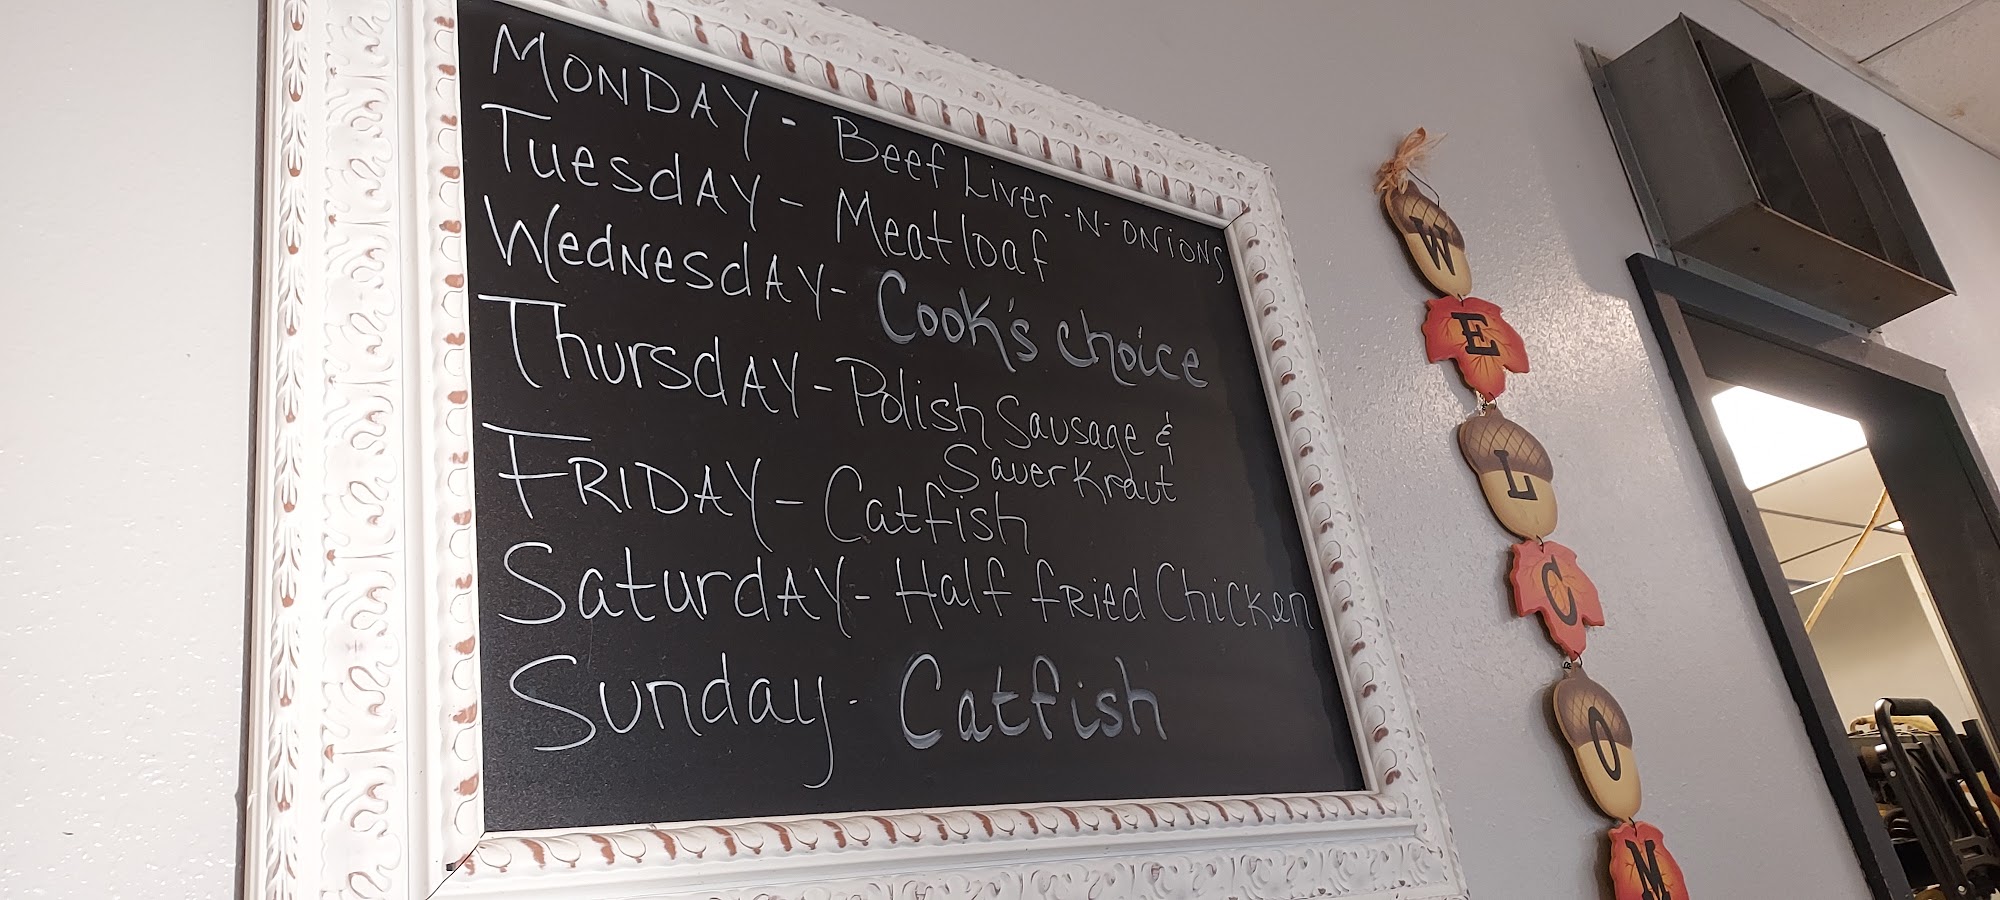 MONDAY - Beef Liver -N- ONIONS
TuesdAY - Meatloaf
WedNesdAY - Cook's choice
ThursdAY - Polish Sausage &
Sauer Kraut
FRIDAY - Catfish
SaturdAY - Half fRied ChicKen
Sunday - Catfish
W
E
L
C
O
M